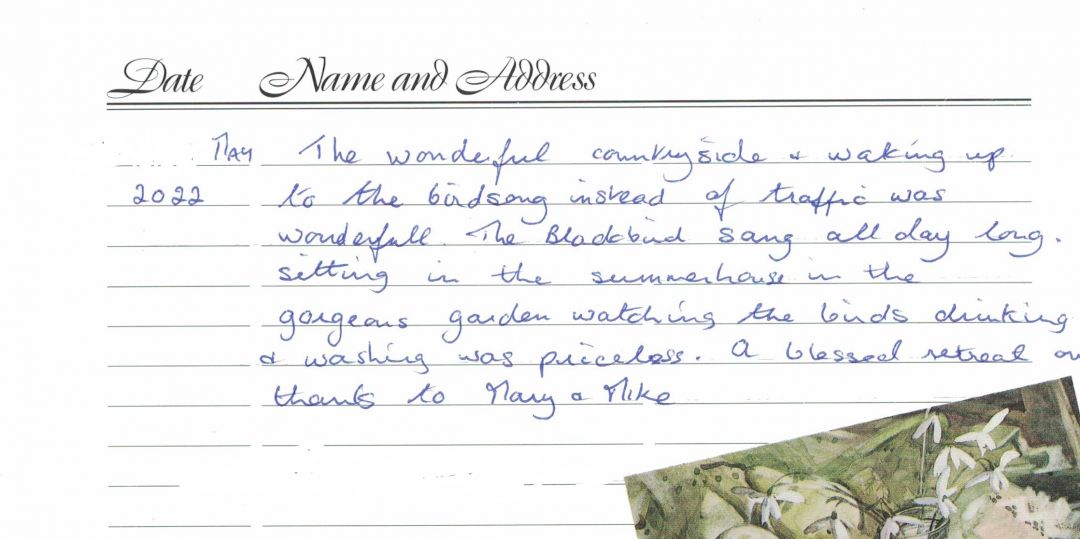 Date Name and Address
May The wonderful countryside & waking up
2022 to the birdsong instead of traffic was
wonderfull. The Blackbird sang all day long.
sitting in the summerhouse in the
gorgeous garden watching the birds drinking
& washing was priceless. A blessed retreat
thanks to Mary & Mike